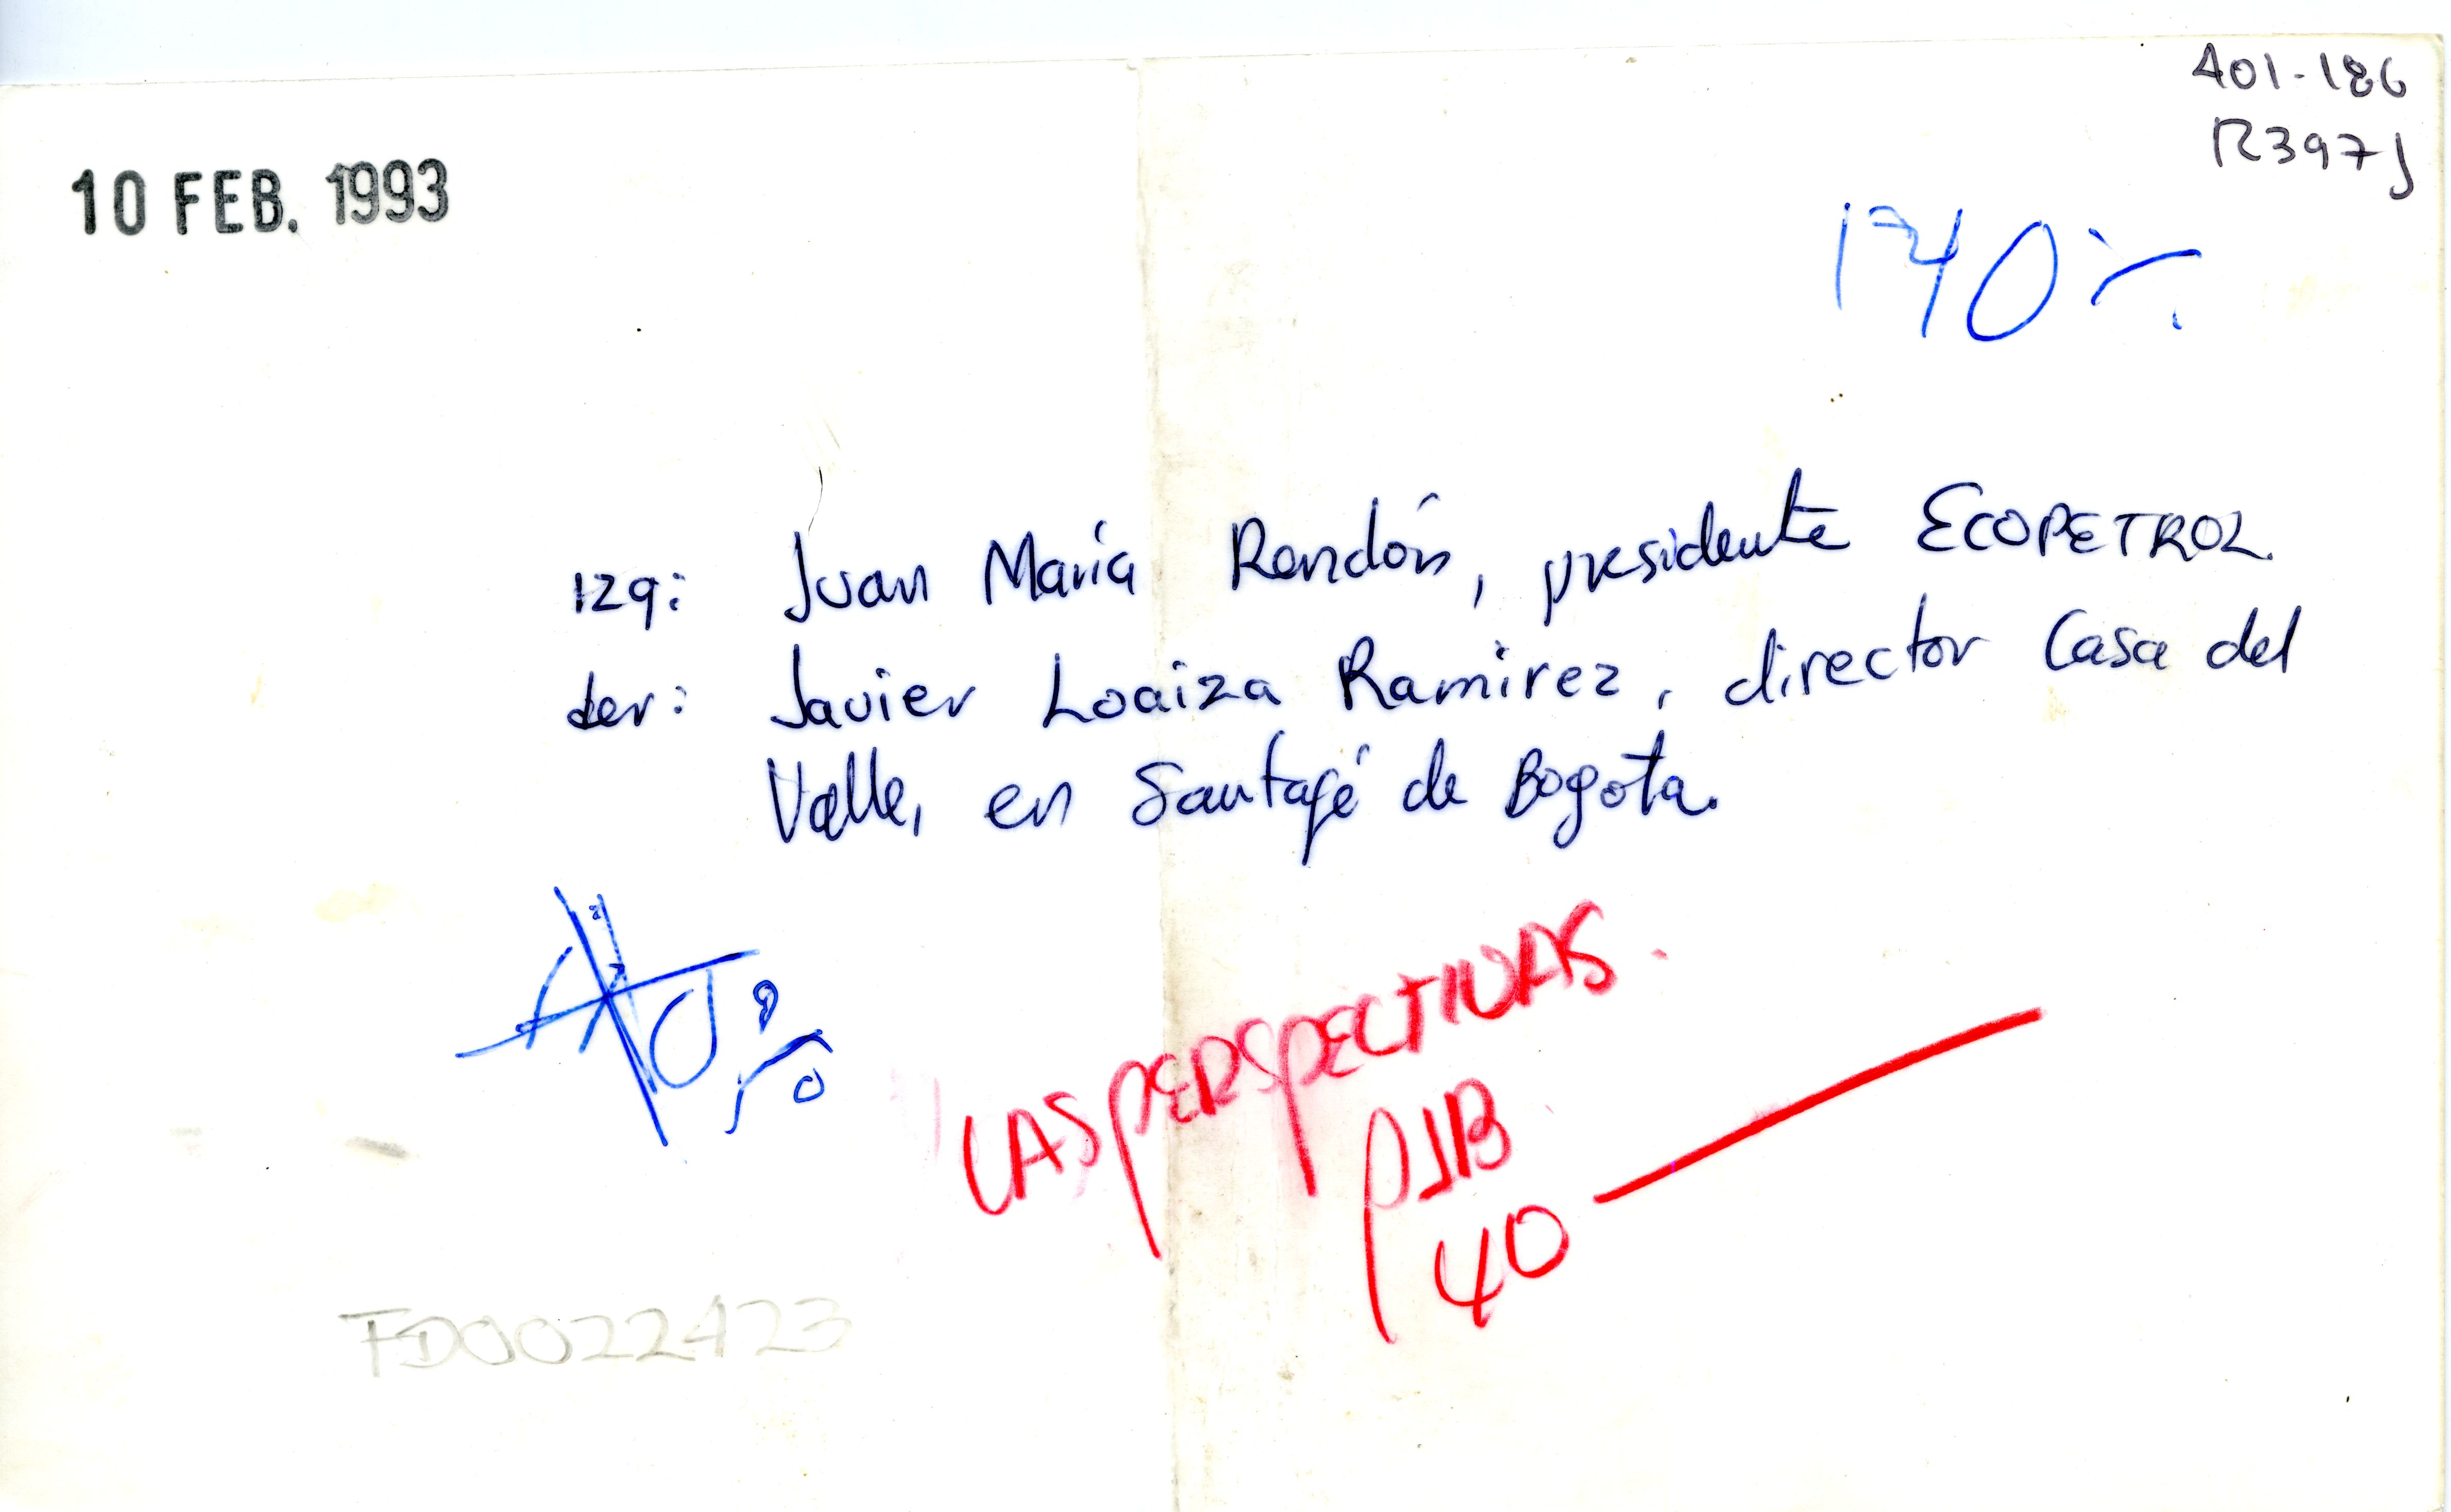 401-186
R397J
10 FEB. 1993
140%
izq: Juan María Rendón, presidente ECOPETROL
der: Javier Loaiza Ramirez, director Casa del
Valle, en Santafé de Bogota.
LAS PERSPECTIVAS
PIB
40
FD0022423